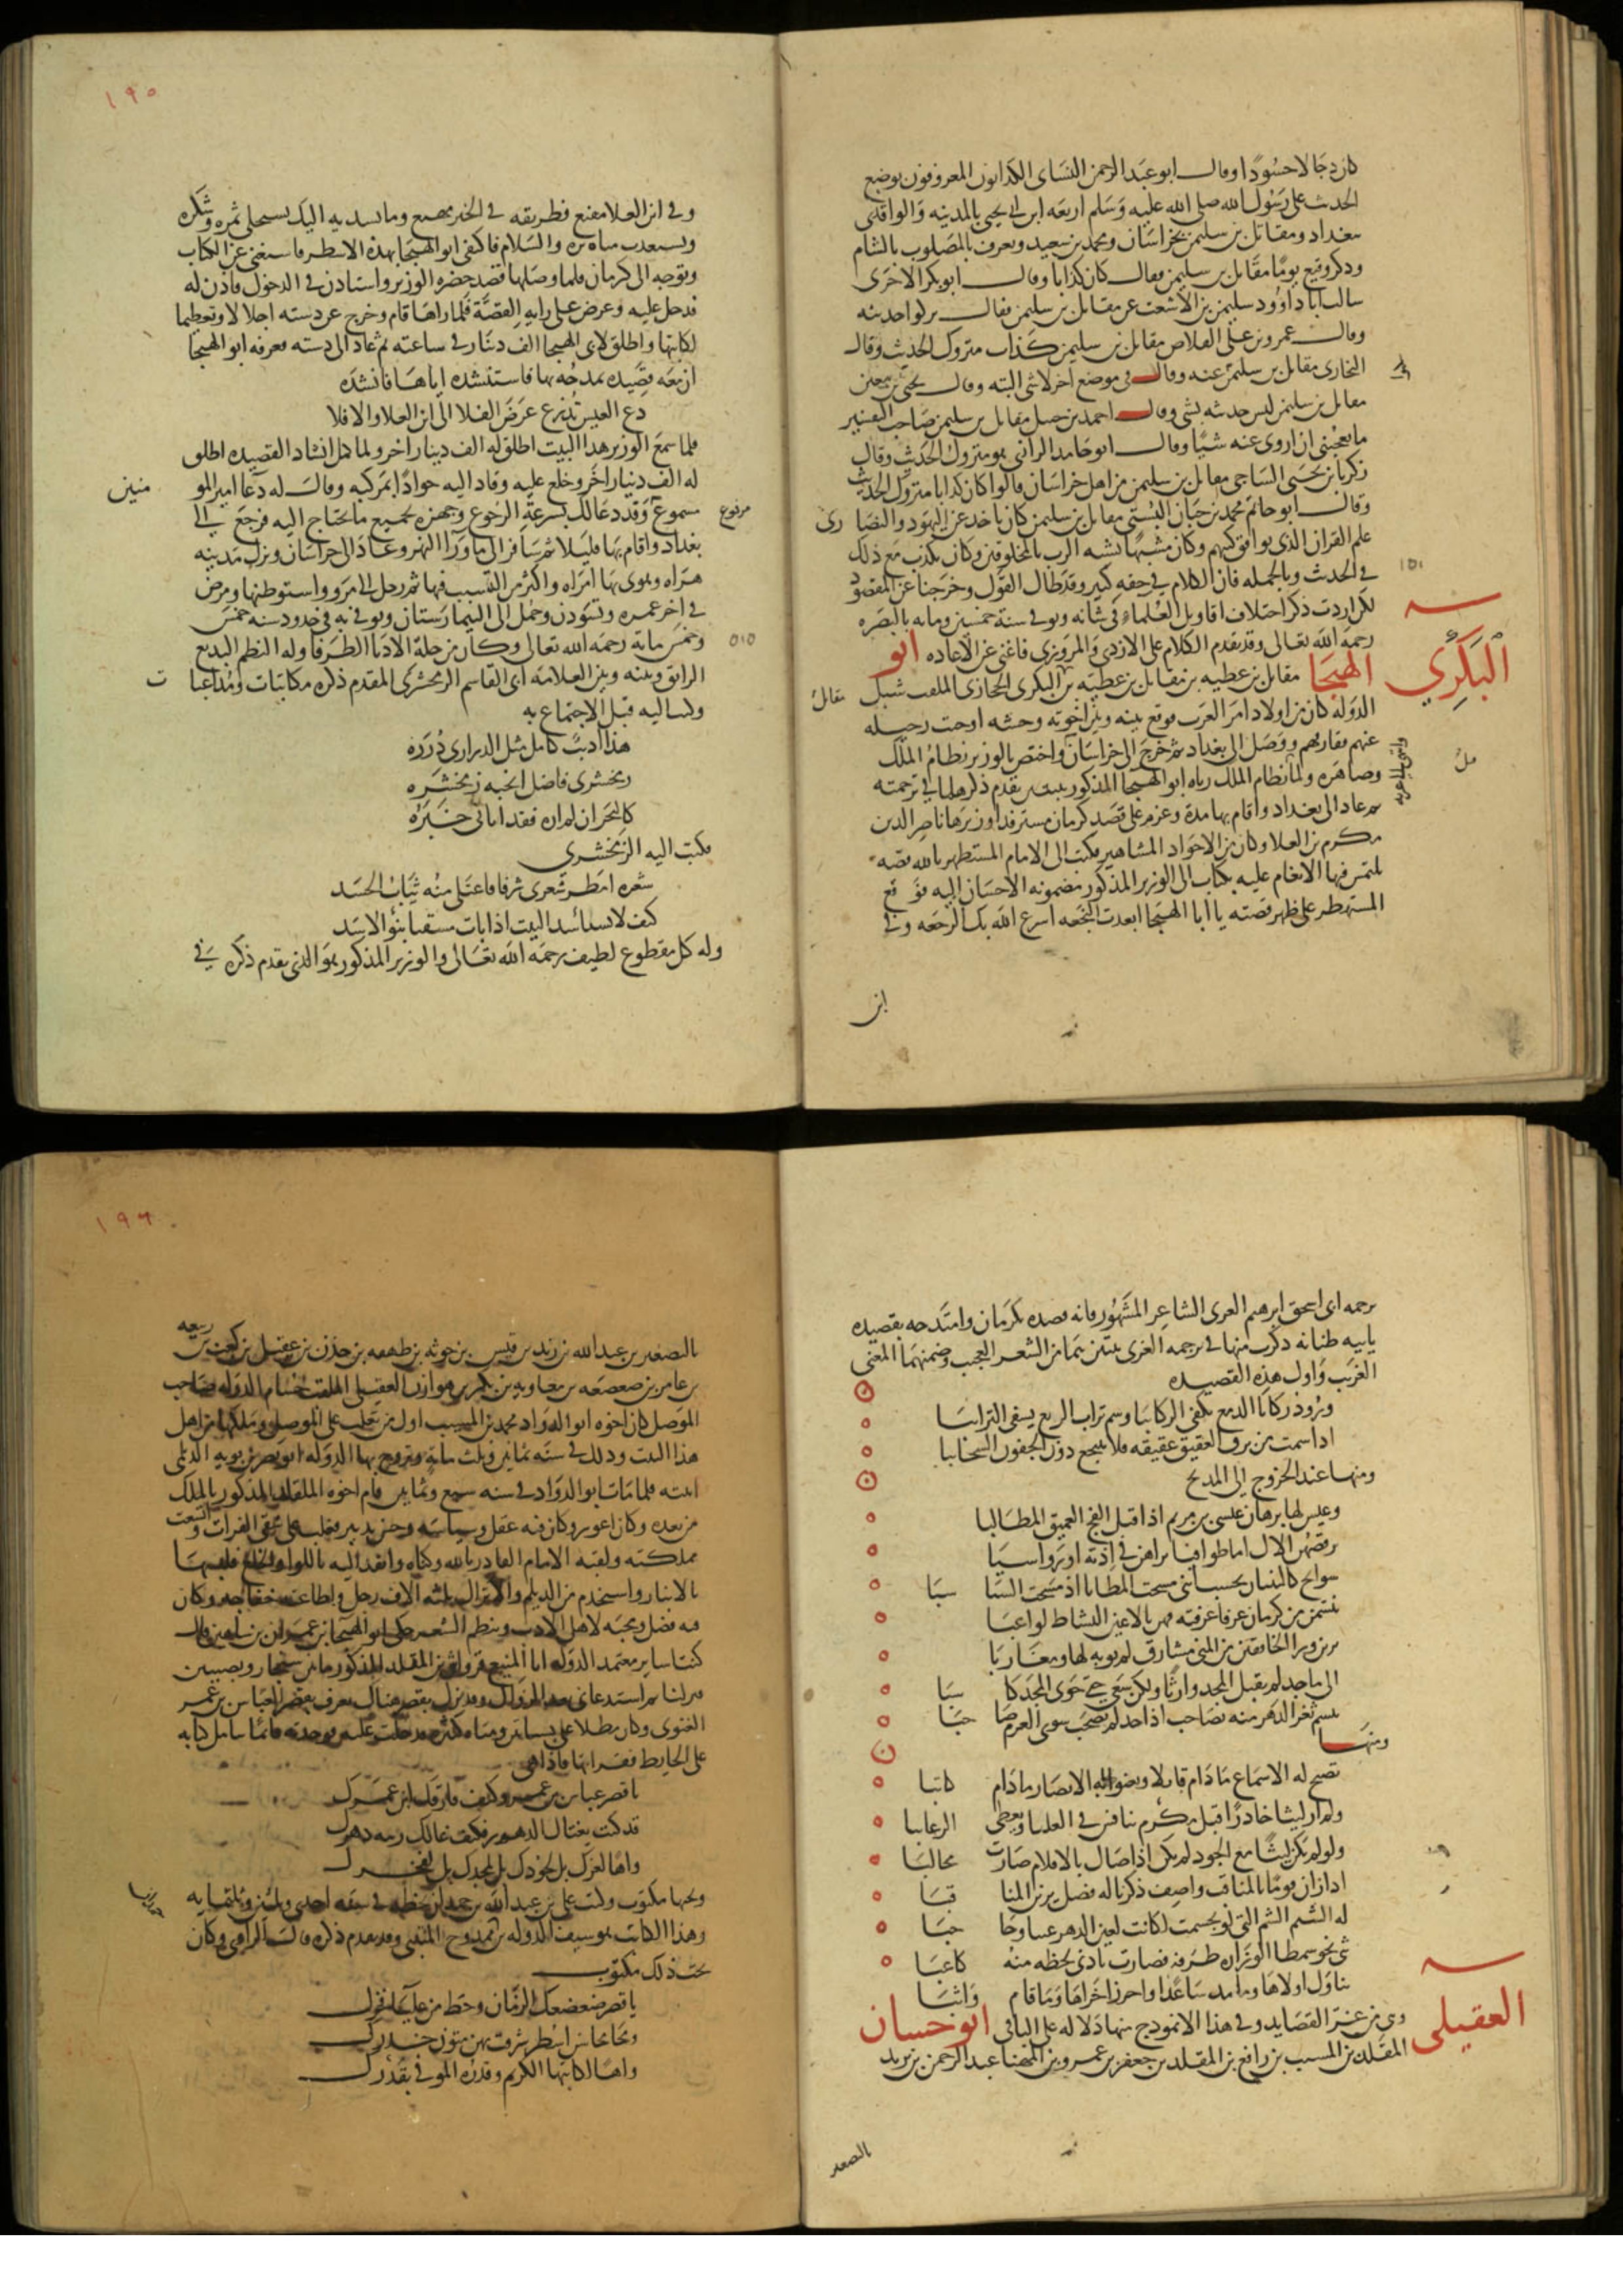 كان دجالا جسورا وقال ابو عبد الرحمن النساى الكذابون المعروفون بوضع
الحديث على رسول الله صلى الله عليه وسلم اربعه ابن ابى يحيى بالمدينه والواقدى
ببغداد ومقاتل بن سليمن بخراسان ومحمد بن سعيد ويعرف بالمصلوب بالشام
وذكر وكيع يوما مقاتل بن سليمن فقال كان كذابا وقال ابو بكر الاجرى
سالت ابا داوود سليمن بن الاشعث عن مقاتل بن سليمن فقال تركوا حديثه
وقال عمرو بن على الفلاس مقاتل بن سليمن كذاب متروك الحديث وقال
البخارى مقاتل بن سليمن عنه وقال فى موضع اخر لا شى البته وقال يحيى بن معين
مقاتل بن سليمن ليس حديثه بشى وقال احمد بن حنبل مقاتل بن سليمن صاحب التفسير
ما يعجبنى ان اروى عنه شيا وقال ابو حامد الرازى هو متروك الحديث وقال
زكريا بن يحيى الساجى مقاتل بن سليمن من اهل خراسان قالوا كان كذابا متروك الحديث
وقال ابو حاتم محمد بن حبان البستى مقاتل بن سليمن كان ياخذ عن اليهود والنصا رى
علم القران الذى يوافق كتبهم وكان مشبها يشبه الرب بالمخلوقين وكان يكذب مع ذلك
فى الحديث وبالجمله فان الكلام فى حقه كثير وقد طال القول وخرجنا عن المقصود
١٥١
لكن اردت ذكر اختلاف اقاويل العلماء فى شانه وتوفى سنة خمسين ومايه بالبصره
رحمه الله تعالى وقد تقدم الكلام على الازدى والمروزى فاغنى عن الاعاده ابو
البكري
الهيجا مقاتل بن عطيه بن مقاتل بن عطيه بن البكرى الحجازى الملقب شبل
مقاتل
الدوله كان من اولاد امرا العرب فوقع بينه وبين اخوته وحشه اوجبت رحيله
عنهم ففارقهم ووصل الى بغداد ثم خرج الى خراسان واختص بالوزير نظام الملك
وصاهره ولما نظام الملك رثاه ابو الهيجا المذكور ببيتين تقدم ذكرهما فى ترجمته
ثم عاد الى بغداد واقام بها مدة وعزم على قصد كرمان مسترفدا وزيرها ناصر الدين
مكرم بن العلا وكان من الاجواد المشاهير فكتب الى الامام المستظهر بالله قصه
يلتمس فيها الانعام عليه بكتاب الى الوزير المذكور مضمونه الاحسان اليه فوقع
المستظهر على ظهر قصته يا ابا الهيجا ابعدت النجعه اسرع الله بك الرجعه وفى
ابن
١٩٥
وفى ابن العلا مقنع فطريقه فى الخير مهيع وما يسديه اليك يستحلى ثمره وشكره
ويستعذب مياه بره والسلام فاكتفى ابو الهيجا بهذه الاسطر فاستغنى عن الكتاب
وتوجه الى كرمان فلما وصلها قصد حضره الوزير واستاذن فى الدخول فاذن له
فدخل عليه وعرض على رايه القصة فلما راها قام وخرج عن دسته اجلالا وتعظيما
لكاتبها واطلق لابى الهيجا الف دينار فى ساعته ثم عاد الى دسته فعرفه ابو الهيجا
ان معه قصيده يمدحه بها فاستنشده اياها فانشده
دع العيس تذرع عرض الفلا الى ابن العلا والا فلا
فلما سمع الوزير هذا البيت اطلق له الف دينار اخر ولما كمل انشاد القصيده اطلق
له الف دينار اخر وخلع عليه وقاد اليه جوادا بمركبه وقال له دعا امير المو منين
مسموع مرفوع وقد دعا لك بسرعة الرجوع وجهزه بجميع ما يحتاج اليه فرجع الى
بغداد واقام بها قليلا ثم سافر الى ما ورا النهر وعاد الى خراسان ونزل مدينه
هراه وهوى بها امراه واكثر من التشبيب فيها ثم رحل الى مرو واستوطنها ومرض
فى اخر عمره وتسودن وحمل الى البيمارستان وتوفى به فى حدود سنه خمس
٥٠٥
وخمس ماية رحمه الله تعالى وكان من جملة الادبا الظرفا وله النظم البديع
الرايق وبينه وبين العلامه ابى القاسم الزمخشرى المقدم ذكره مكاتبات ومداعبا ت
وكتب اليه قبل الاجتماع به
هذا اديب كامل مثل الدرارى درره
زمخشرى فاضل انجبه زمخشره
كالبحر ان لم اره فقد اتانى خبره
فكتب اليه الزمخشري
شعره امطر شعرى شرفا فاعتلى منه ثياب الحسد
كيف لا يستاسد البيت اذا بات مستقيا بنو الاسد
وله كل مقطوع لطيف رحمه الله تعالى والوزير المذكور هو الذى تقدم ذكره فى
ترجمه ابى اسحق ابرهيم الغزى الشاعر المشهور فانه قصده بكرمان وامتدحه بقصيده
يابيه طنانه ذكرت منها فى ترجمه الغزى بيتين هما من الشعر العجيب وضمنهما المعنى
الغريب واول هذه القصيده
ورود ركايا الدمع يكفى الركايبا وشم تراب الربع يشفى الترايبا
اذا شمت من برق العقيق عقيقه فلا تنتجع دون الجفون السحايبا
ومنها عند الخروج الى المديح
وعيس لها برهان عيسى بن مريم اذا قبل الفج العميق المطالبا
يرقصهن الال اما طوافيا تراهن فى اذيه او رواسبا
سوابح كالنينان تحسب اننى مسحت المطايا اذ مسحت السبا سبا
تنسمن من كرمان عرفا عرفنه فهن بالاعين النشاط لواعبا
يرين ورا الخافقين من المنى مشارق لم يوبه لها ومغاربا
الى ماجد لم يقبل المجد وارثا ولكن سعى حتى حوى المجد كا سبا
تبسم ثغر الدهر منه بصاحب اذا جد لم يصحب سوى العزم صا حبا
ومنها
تصيح له الاسماع ما دام قايلا وتعنو له الابصار ما دام كاتبا
ولم ار ليثا خادرا قبل مكرم ينافس فى العليا ويعطى الرغايبا
ولو لم يكن ليثا مع الجود لم يكن اذا صال بالاقلام صارت مخالبا
اذا زان قوما بالمناقب واصف ذكرنا له فضل يزين المنا قبا
له الشيم الشم التى لو تجسمت لكانت لعين الدهر عينا وحا جبا
ثنى نحو شمطا الوزاره طرفه فصارت بادنى لحظه منه كاعبا
تناول اولاها وما مد ساعدا واحرز اخراها وما قام واثبا
وهى من غرر القصايد وفى هذا الانموذج منها دلاله على الباقى ابو حسان
العقيلى
المقلد بن المسيب بن رافع بن المقلد بن جعفر بن عمرو بن المهنا عبد الرحمن بن بريد
بالتصغير
١٩٦
بالتصغير بن عبد الله بن زيد بن قيس بن جوثه بن طهفه بن حزن بن عقيل بن كعب بن ربيعه
بن عامر بن صعصعه بن معاويه بن بكر بن هوازن العقيلى الملقب حسام الدوله صاحب
الموصل كان اخوه ابو الدواد محمد بن المسيب اول من تغلب على الموصل وملكها من اهل
هذا البيت وذلك فى سنه ثمانين وثلث مايه وتزوج بها الدوله ابو نصر بن بويه الديلمى
ابنته فلما مات ابو الدواد فى سنه سبع وثمانين قام اخوه المقلد المذكور بالملك
من بعده وكان اعور وكان فيه عقل وسياسه وحزم تدبير فغلب على سقى الفرات واتسعت
مملكته ولقبه الامام القادر بالله وكناه وانفذ اليه باللوا والخلع فلبسها
بالانبار واستخدم من الديلم والاتراك ثلثه الاف رجل واطاعته خفاجه وكان
فيه فضل ومحبه لاهل الادب وينظم الشعر حكى ابو الهيجا بن عمران بن شاهين قال
كنت اساير معتمد الدوله ابا المنيع قرواش بن المقلد المذكور ما بين سنجار ونصيبين
فنزلنا ثم استدعانى بعد الزوال وقد نزل بقصر هناك يعرف بقصر العباس بن عمرو
الغنوى وكان مطلا على بساتين ومياه كثيره فدخلت عليه فوجدته قايما يتامل كتابه
على الحايط فقراتها فاذا هى
يا قصر عباس بن عمرو وكيف فارقك ابن عمرك
قد كنت تغتال الدهور فكيف غالك ريب دهرك
واها لعزك بل لجودك بل لمجدك بل لفخرك
وتحتها مكتوب وكتب على بن عبد الله بن حمدان بخطه فى سنه احدى وثلثين وثلثمايه
وهذا الكاتب هو سيف الدوله بن حمدان ممدوح المتنبى وقد تقدم ذكره قال الراوى وكان
تحت ذلك مكتوب
يا قصر ضعضعك الزمان وحط من علياء فخرك
ومحا محاسن اسطر شرفت بهن متون جدرك
واها لكاتبها الكريم وقدره الموفى بقدرك